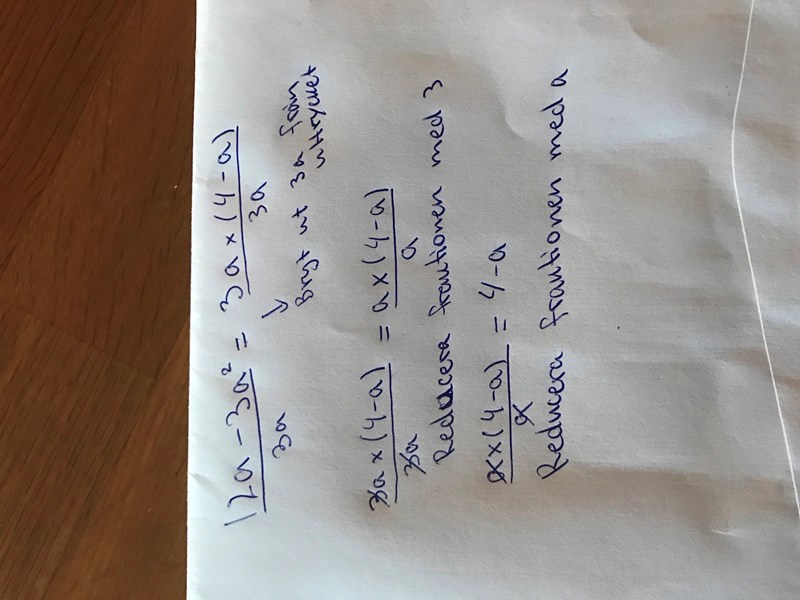 12a - 3a² = 3a × (4-a)
3a 3a
↓
Bryt ut 3a från
uttrycket
3a × (4-a) = a × (4-a)
3a a
Reducera fraktionen med 3
a × (4-a) = 4-a
a
Reducera fraktionen med a